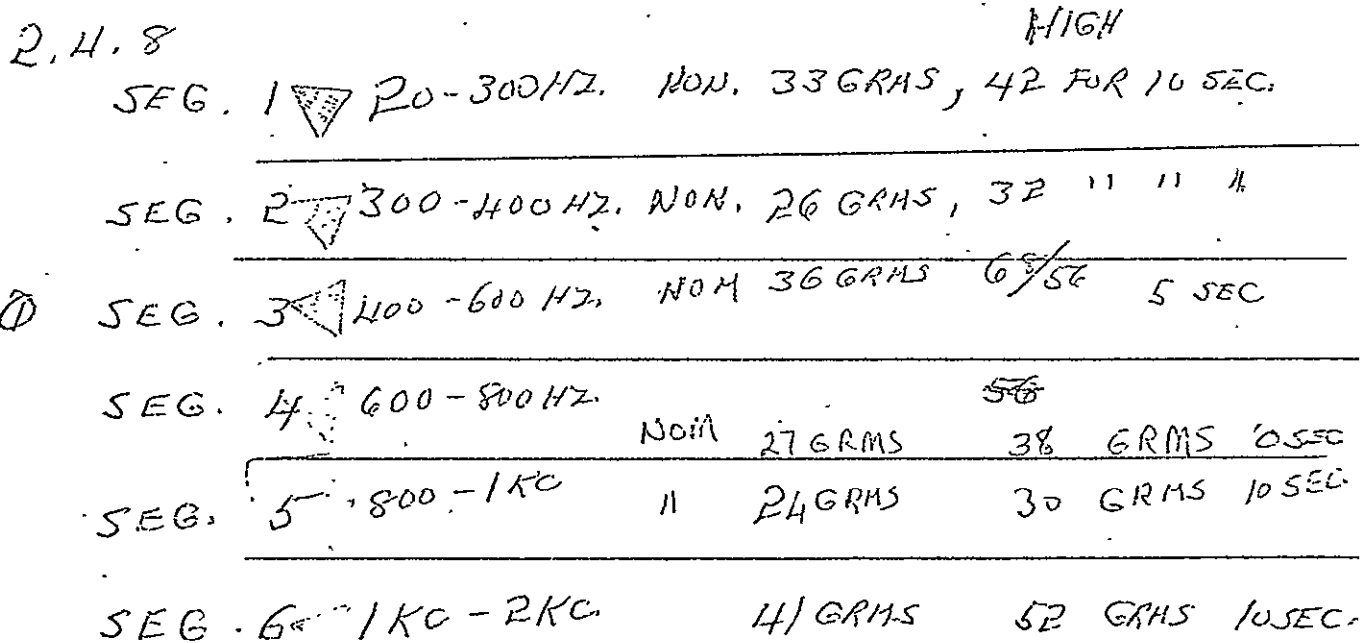 HIGH
2.4.8
SEG. 1 20-300HZ. NON. 33 GRMS, 42 FOR 10 SEC.
SEG. 2 300-400 HZ. NON. 26 GRMS, 32 " " "
SEG. 3 400-600 HZ. NOM 36 GRMS 5 SEC
SEG. 4 600-800 HZ. 56
NOM 27 GRMS 38 GRMS 10 SEC
SEG. 5 800-1KC " 24 GRMS 30 GRMS 10 SEC.
SEG. 6 1KC-2KC. 41 GRMS 52 GRMS 10 SEC.